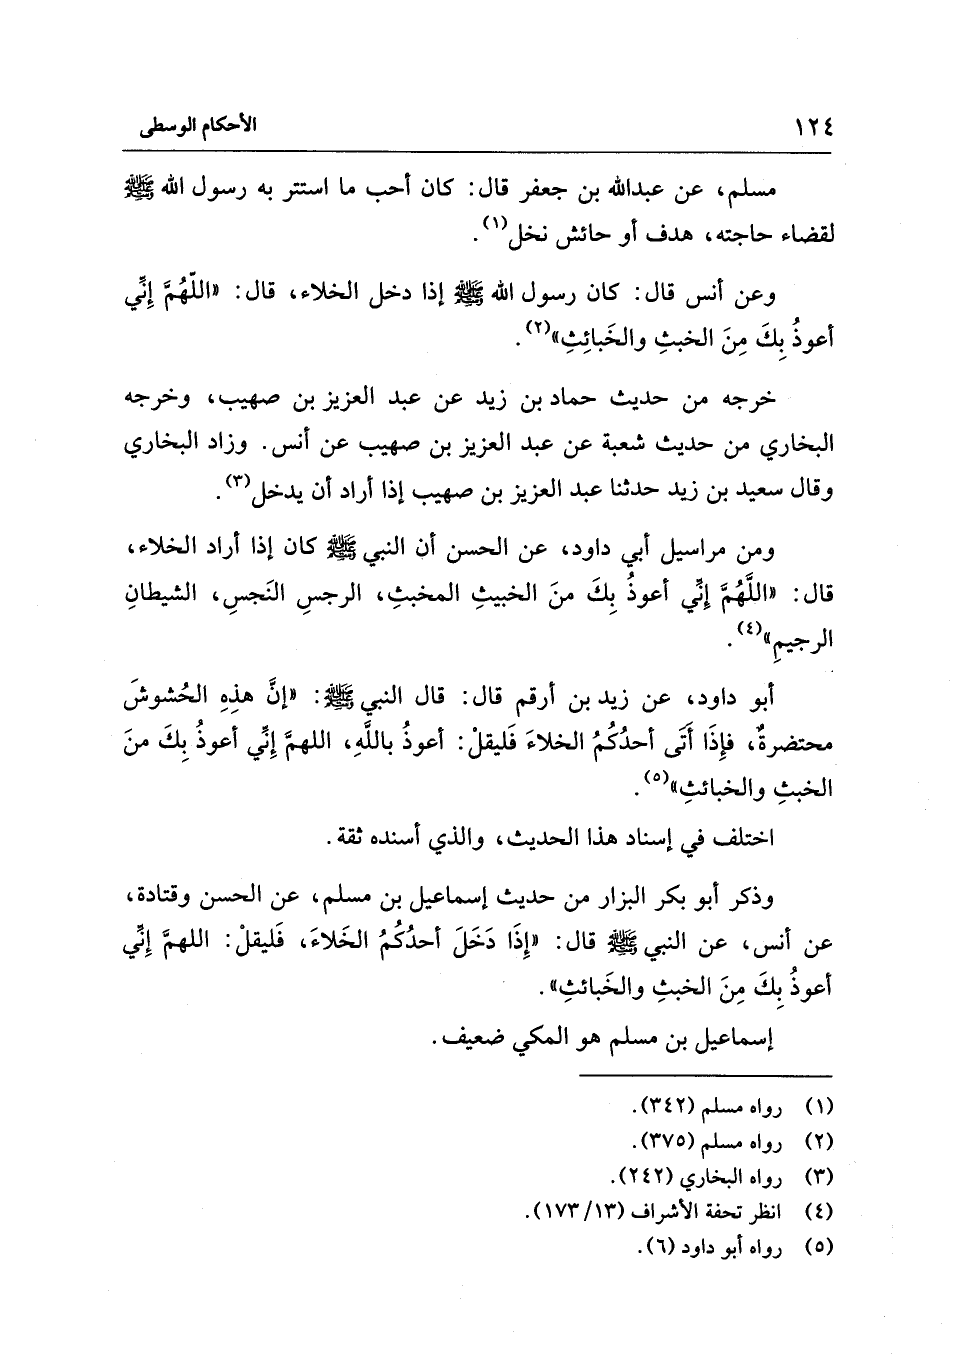 ١٢٤ الأحكام الوسطى
مسلم، عن عبدالله بن جعفر قال: كان أحب ما استتر به رسول الله ﷺ
لقضاء حاجته، هدف أو حائش نخل(١).
وعن أنس قال: كان رسول الله ﷺ إذا دخل الخلاء، قال: «اللّهُمَّ إِنِّي
أعوذُ بِكَ مِنَ الخبثِ والخَبائِثِ»(٢).
خرجه من حديث حماد بن زيد عن عبد العزيز بن صهيب، وخرجه
البخاري من حديث شعبة عن عبد العزيز بن صهيب عن أنس. وزاد البخاري
وقال سعيد بن زيد حدثنا عبد العزيز بن صهيب إذا أراد أن يدخل(٣).
ومن مراسيل أبي داود، عن الحسن أن النبي ﷺ كان إذا أراد الخلاء،
قال: «اللَّهُمَّ إِنِّي أعوذُ بِكَ منَ الخبيثِ المخبثِ، الرجسِ النَجسِ، الشيطانِ
الرجيمِ»(٤).
أبو داود، عن زيد بن أرقم قال: قال النبي ﷺ: «إنَّ هذِهِ الحُشوشَ
محتضرةٌ، فإِذَا أَتَى أحدُكُمُ الخلاءَ فَليقلْ: أعوذُ باللَّهِ، اللهمَّ إِنِّي أعوذُ بِكَ منَ
الخبثِ والخبائثِ»(٥).
اختلف في إسناد هذا الحديث، والذي أسنده ثقة.
وذكر أبو بكر البزار من حديث إسماعيل بن مسلم، عن الحسن وقتادة،
عن أنس، عن النبي ﷺ قال: «إِذَا دَخَلَ أحدُكُمُ الخَلاءَ، فَليقلْ: اللهمَّ إِنِّي
أعوذُ بِكَ مِنَ الخبثِ والخَبائثِ».
إسماعيل بن مسلم هو المكي ضعيف.
(١) رواه مسلم (٣٤٢).
(٢) رواه مسلم (٣٧٥).
(٣) رواه البخاري (٢٤٢).
(٤) انظر تحفة الأشراف (١٣/ ١٧٣).
(٥) رواه أبو داود (٦).